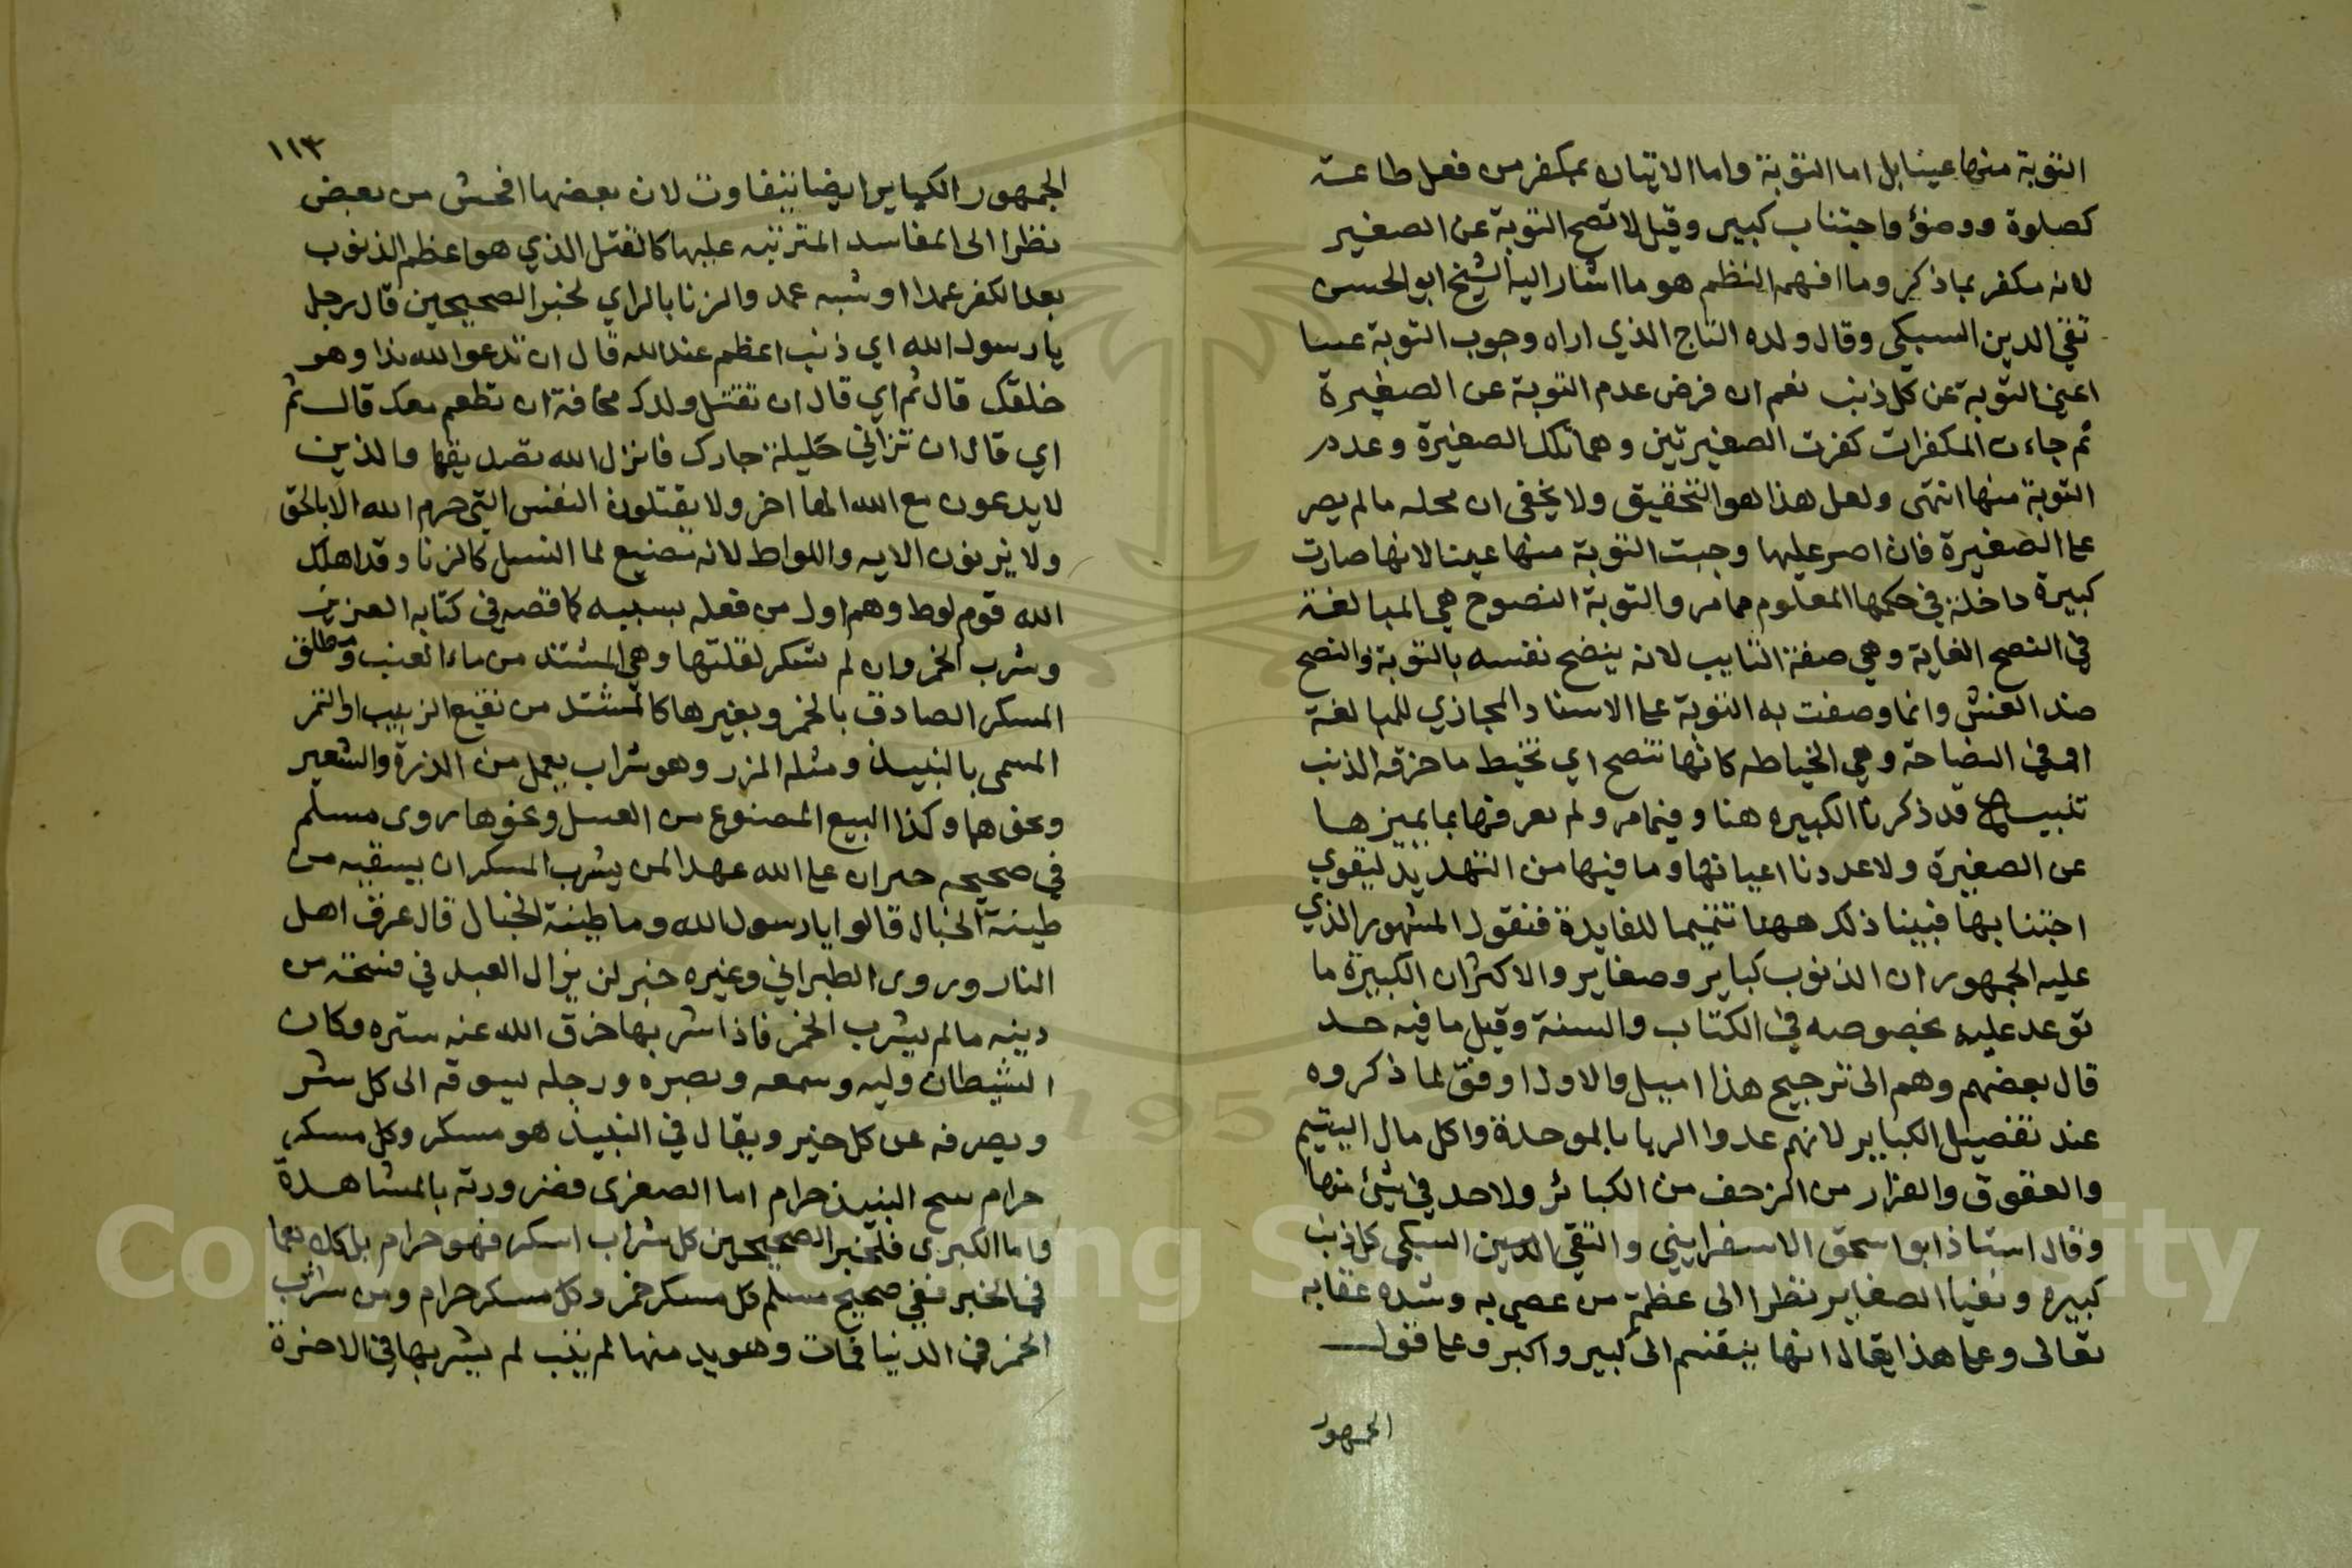 التوبة منها عينا بل اما التوبة واما الاتيان بمكفر من فعل طاعة
كصلوة ووضؤ واجتناب كبير وقيل لا تصح التوبة عن الصغير
لانه مكفر بما ذكر وما افهمه النظم هو ما اشار اليه الشيخ ابو الحسن
تقي الدين السبكي وقال ولده التاج الذي اراه وجوب التوبة عينا
اعني التوبة عن كل ذنب نعم ان فرض عدم التوبة عن الصغيرة
ثم جاءت المكفرات كفرت الصغيرتين وهما تلك الصغيرة وعدم
التوبة منها انتهى ولعل هذا هو التحقيق ولا يخفى ان محله ما لم يصر
على الصغيرة فان اصر عليها وجبت التوبة منها عينا لانها صارت
كبيرة داخلة في حكمها المعلوم مما مر والتوبة النصوح هي المبالغة
في النصح الغاية وهي صفة التايب لانه ينصح نفسه بالتوبة والنصح
ضد الغش وانما وصفت به التوبة على الاسناد المجازي للمبالغة
او في النصاحة وهي الخياطه كانها تنصح اي تخيط ما خرقه الذنب
تنبيه قد ذكرنا الكبيره هنا وفيما مر ولم نعرفها بما يميزها
عن الصغيرة ولا عددنا اعيانها وما فيها من التهديد ليقوي
اجتنابها فبينا ذلك ههنا تتميما للفايدة فنقول المشهور الذي
عليه الجمهور ان الذنوب كباير وصغاير والاكثر ان الكبيرة ما
توعد عليه بخصوصه في الكتاب والسنة وقيل ما فيه حد
قال بعضهم وهم الى ترجيح هذا اميل والاول اوفق لما ذكروه
عند تفصيل الكباير لانهم عدوا الربا بالموحدة واكل مال اليتيم
والعقوق والفرار من الزحف من الكبائر ولا حد في شيئ منها
وقال استاذ ابو اسحق الاسفرايني والتقي الدين السبكي كل ذنب
كبيره ونفيا الصغاير نظرا الى عظمة من عصي به وشده عقابه
تعالى وعلى هذا يقال انها ينقسم الى كبير واكبر وعلى قول
الجمهور
١١٣
الجمهور الكباير ايضا يتفاوت لان بعضها افحش من بعض
نظرا الى المفاسد المترتبه عليها كالقتل الذي هو اعظم الذنوب
بعد الكفر عمدا او شبه عمد والزنا بالراي لخبر الصحيحين قال رجل
يا رسول الله اي ذنب اعظم عند الله قال ان تدعوا لله ندا وهو
خلقك قال ثم اي قال ان تقتل ولدك مخافة ان تطعم معك قال ثم
اي قال ان تزاني حليلة جارك فانزل الله تصديقها والذين
لا يدعون مع الله الها اخر ولا يقتلون النفس التي حرم الله الا بالحق
ولا يزنون الايه واللواط لانه تضييع لما النسل كالزنا وقد اهلك
الله قوم لوط وهم اول من فعله بسببه كما قصه في كتابه العزيز
وشرب الخمر وان لم تسكر لقلتها وهي المشتد من ماء العنب ومطلق
المسكر الصادق بالخمر وبغيرها كالمشتد من نقيع الزبيب او التمر
المسمى بالنبيذ ومثله المزر وهو شراب يعمل من الذرة والشعير
ونحوهما وكذا البيع المصنوع من العسل ونحوها روى مسلم
في صحيحه خبر ان على الله عهدا لمن يشرب المسكر ان يسقيه من
طينة الخبال قالوا يا رسول الله وما طينة الخبال قال عرق اهل
النار وروى الطبراني وغيره خبر لن يزال العبد في فسحة من
دينه ما لم يشرب الخمر فاذا شربها خرق الله عنه ستره وكان
الشيطان وليه وسمعه وبصره ورجله يسوقه الى كل شر
ويصرفه عن كل خير ويقال في النبيذ هو مسكر وكل مسكر
حرام ينتج النبيذ حرام اما الصغرى فضرورته بالمشاهدة
واما الكبرى فلخبر الصحيحين كل شراب اسكر فهو حرام بل كلاهما
في الخبر ففي صحيح مسلم كل مسكر خمر وكل مسكر حرام ومن شرب
الخمر في الدنيا فمات وهو يدمنها لم يتب لم يشربها في الاخرة
Copyright © King Saud University
1957